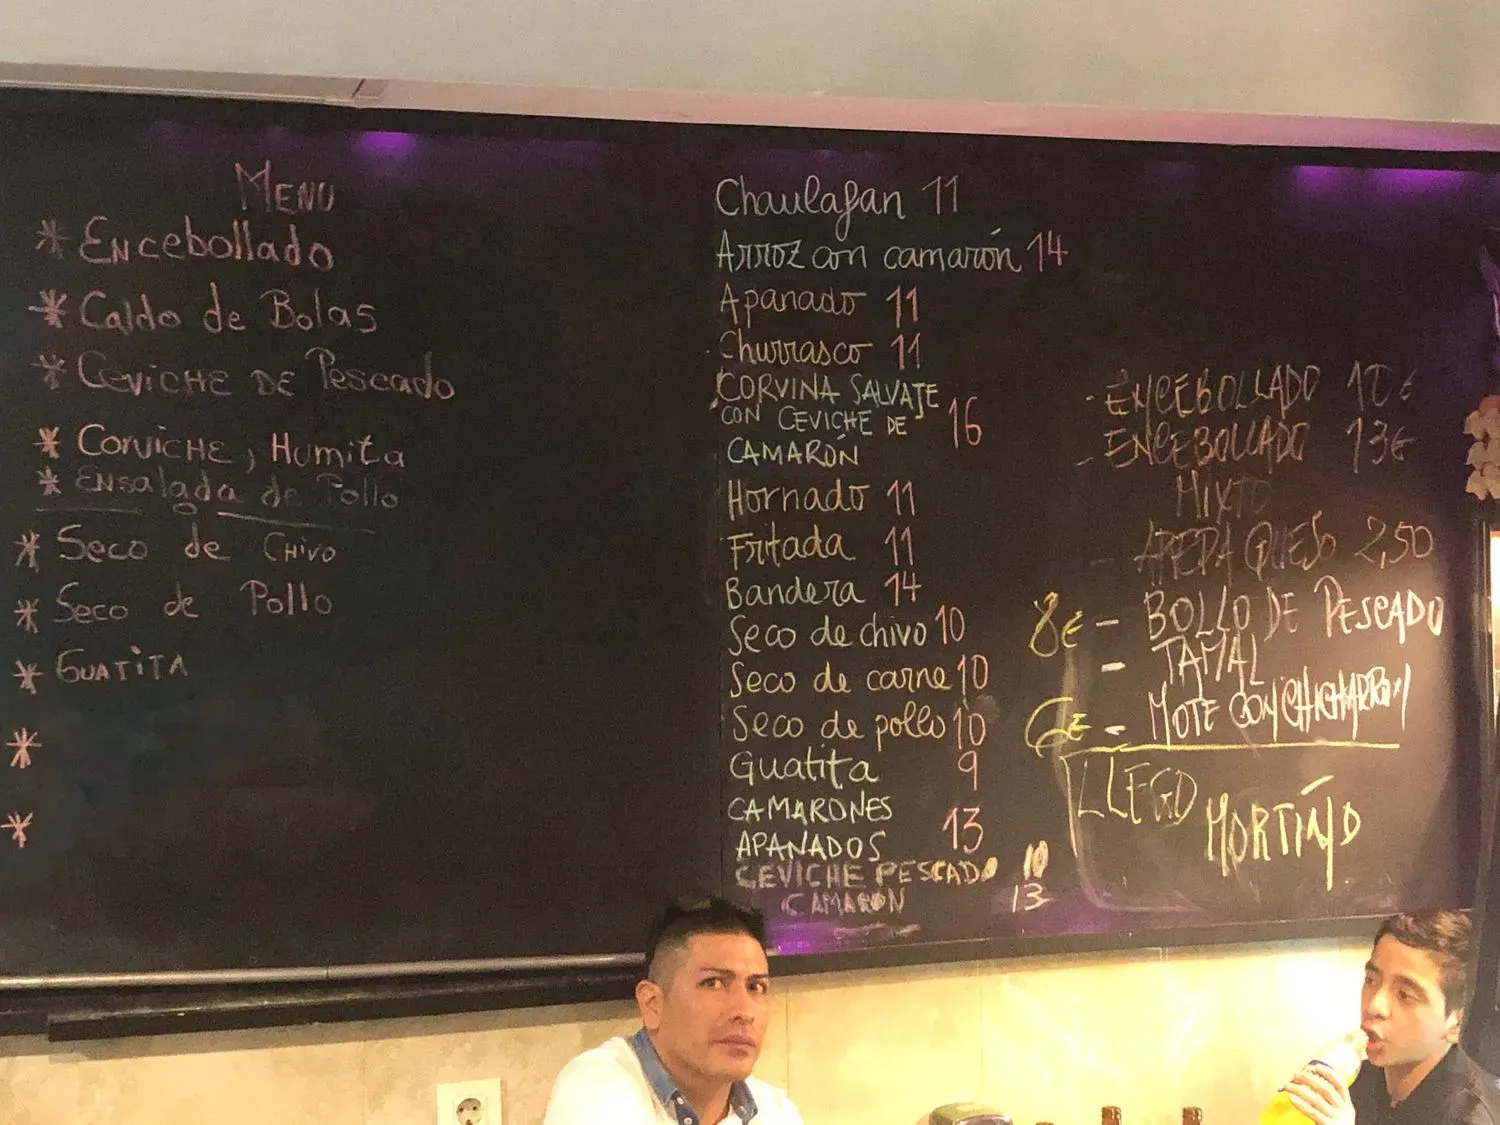 MENU
* ENCEbollado
* Caldo de Bolas
* CEViCHE DE PEscado
* CORViCHE, Humita
* ENsalada de Pollo
* SECO de CHiVO
* SECO de Pollo
* GUATiTA
*
*
Chaulafan 11
Arroz con camarón 14
Apanado 11
Churrasco 11
CORVINA SALVAJE
CON CEVICHE DE 16
CAMARÓN
Hornado 11
Fritada 11
Bandera 14
Seco de chivo 10
Seco de carne 10
Seco de pollo 10
Guatita 9
CAMARONES
APANADOS 13
CEVICHE PESCADO 10
CAMARON 13
- ENCEBOLLADO 10€
- ENCEBOLLADO 13€
MIXTO
- AREPA QUESO 2,50
8€ - BOLLO DE PESCADO
- TAMAL
6€ - MOTE CON
LLEGO
MORTIÑO